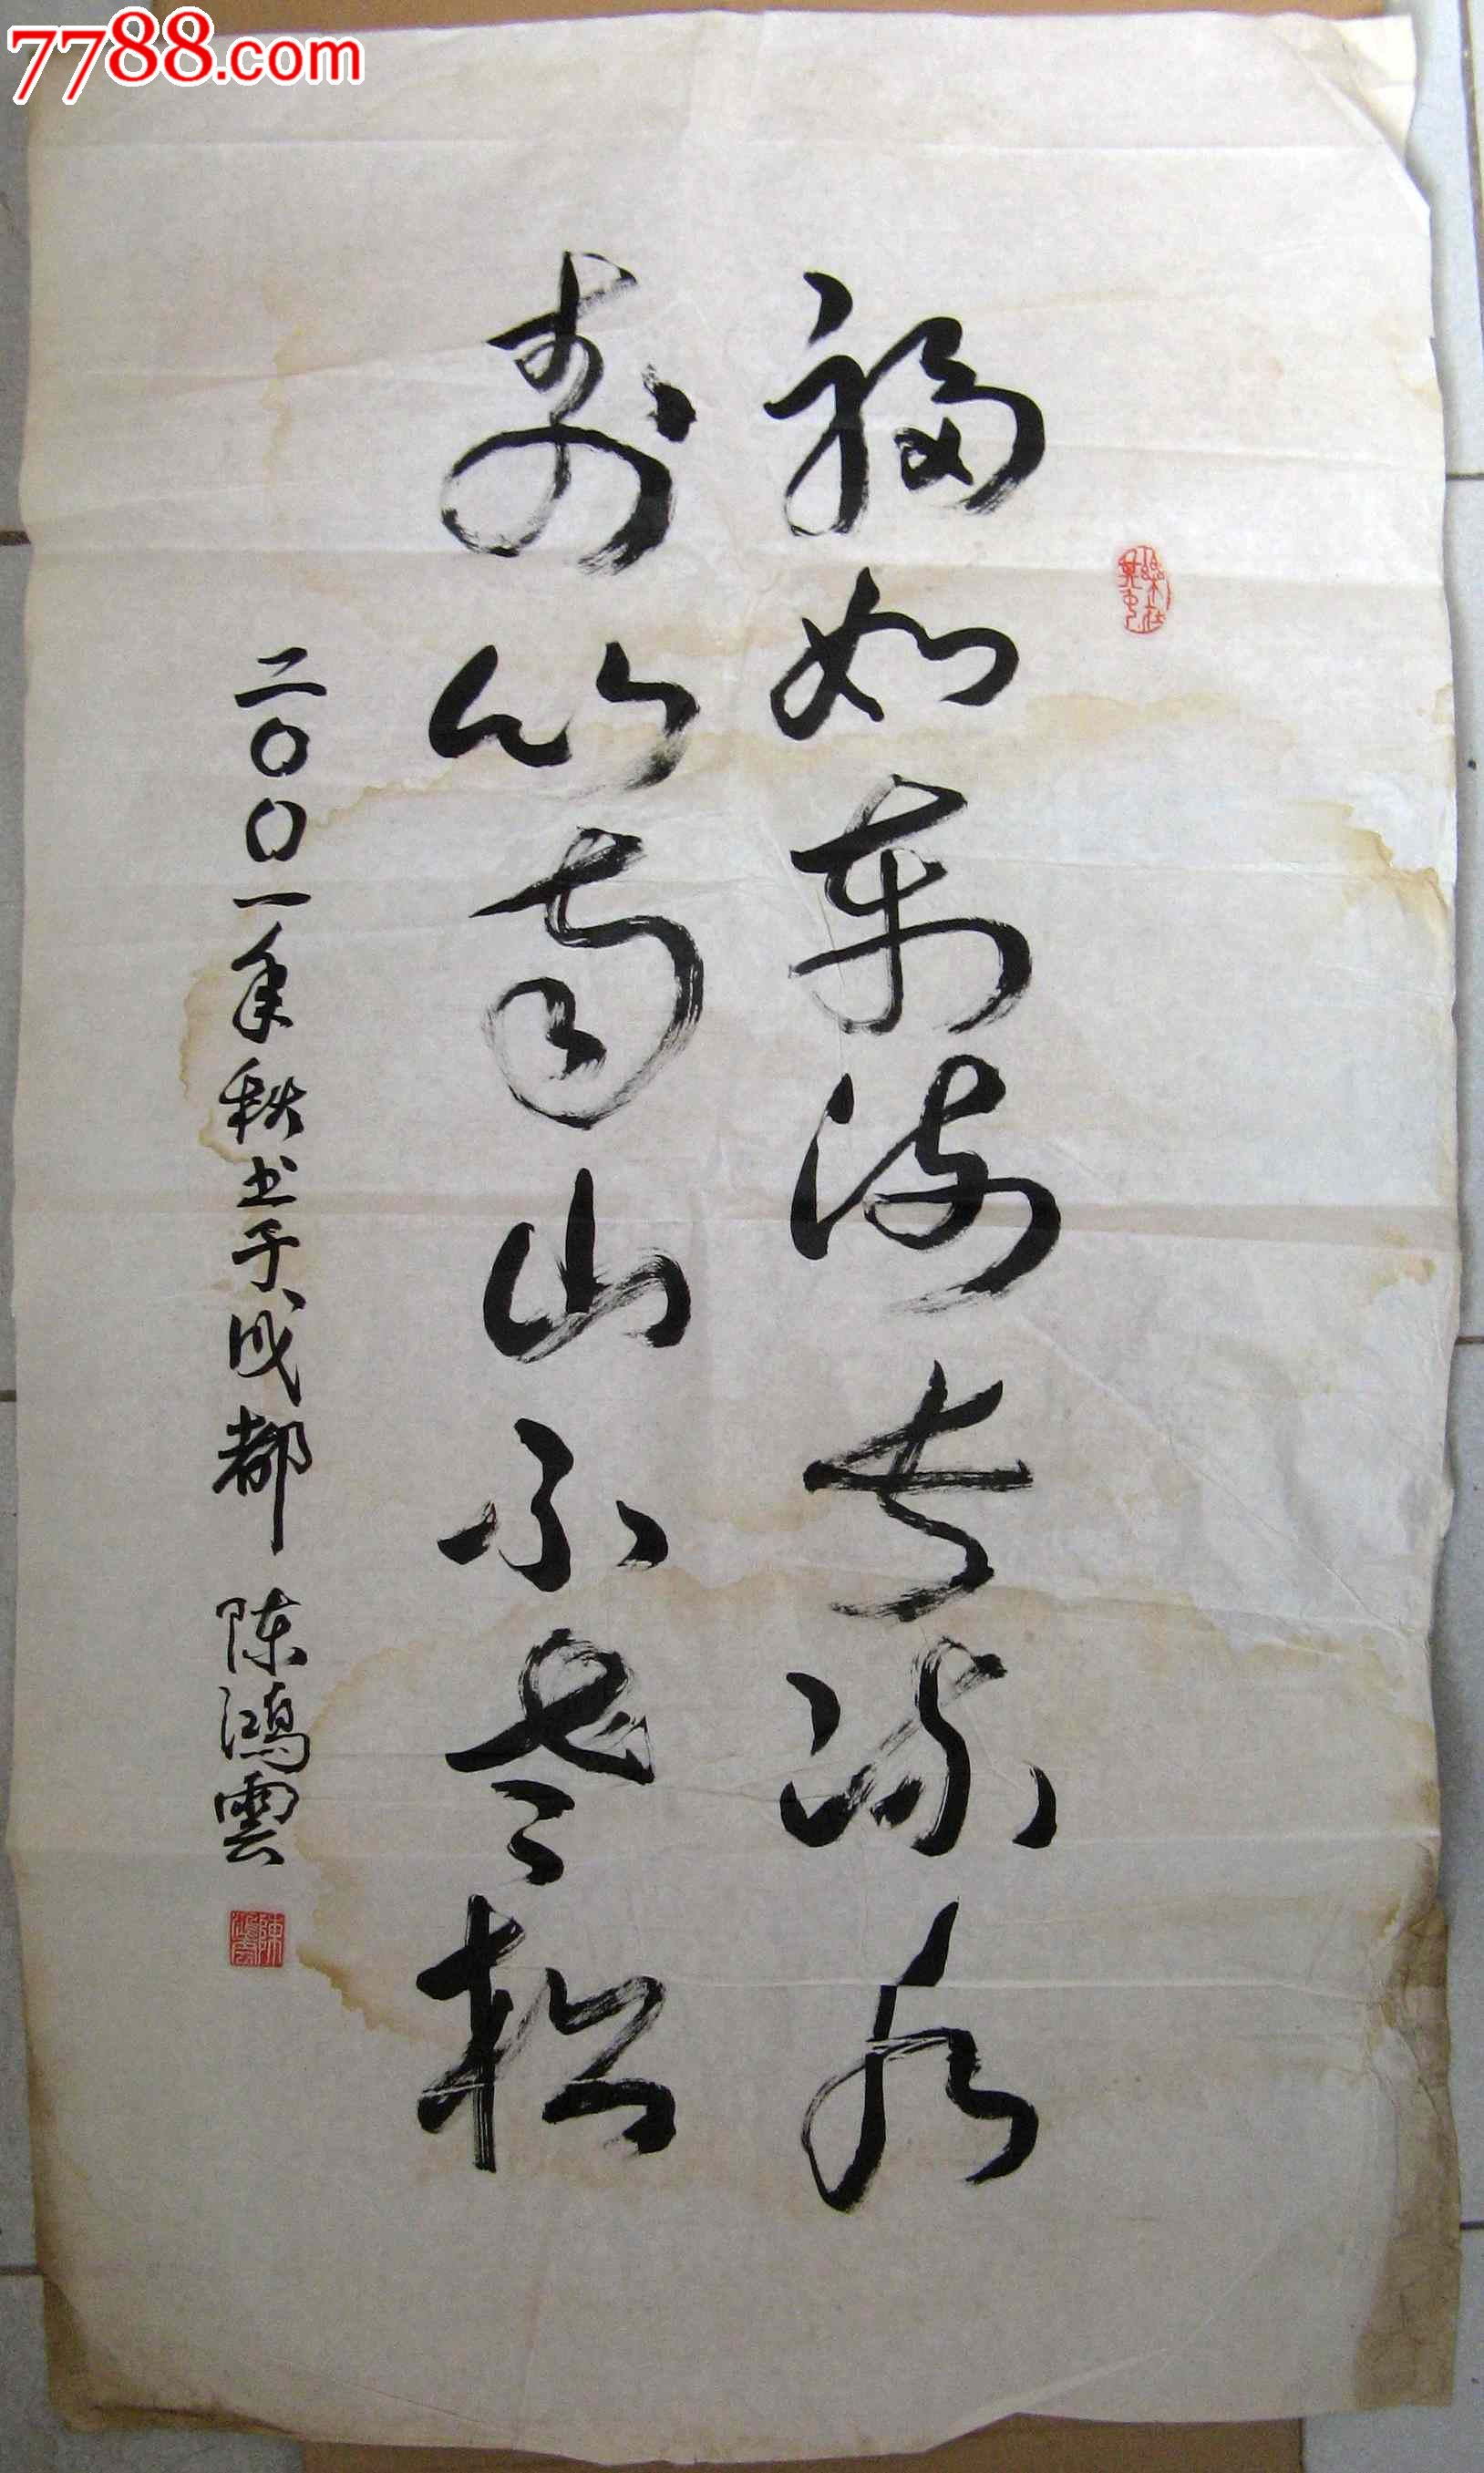 7788.com
福如东海长流水
寿比南山不老松
二〇〇一年秋书于成都 陈鸿雲
陳鴻雲